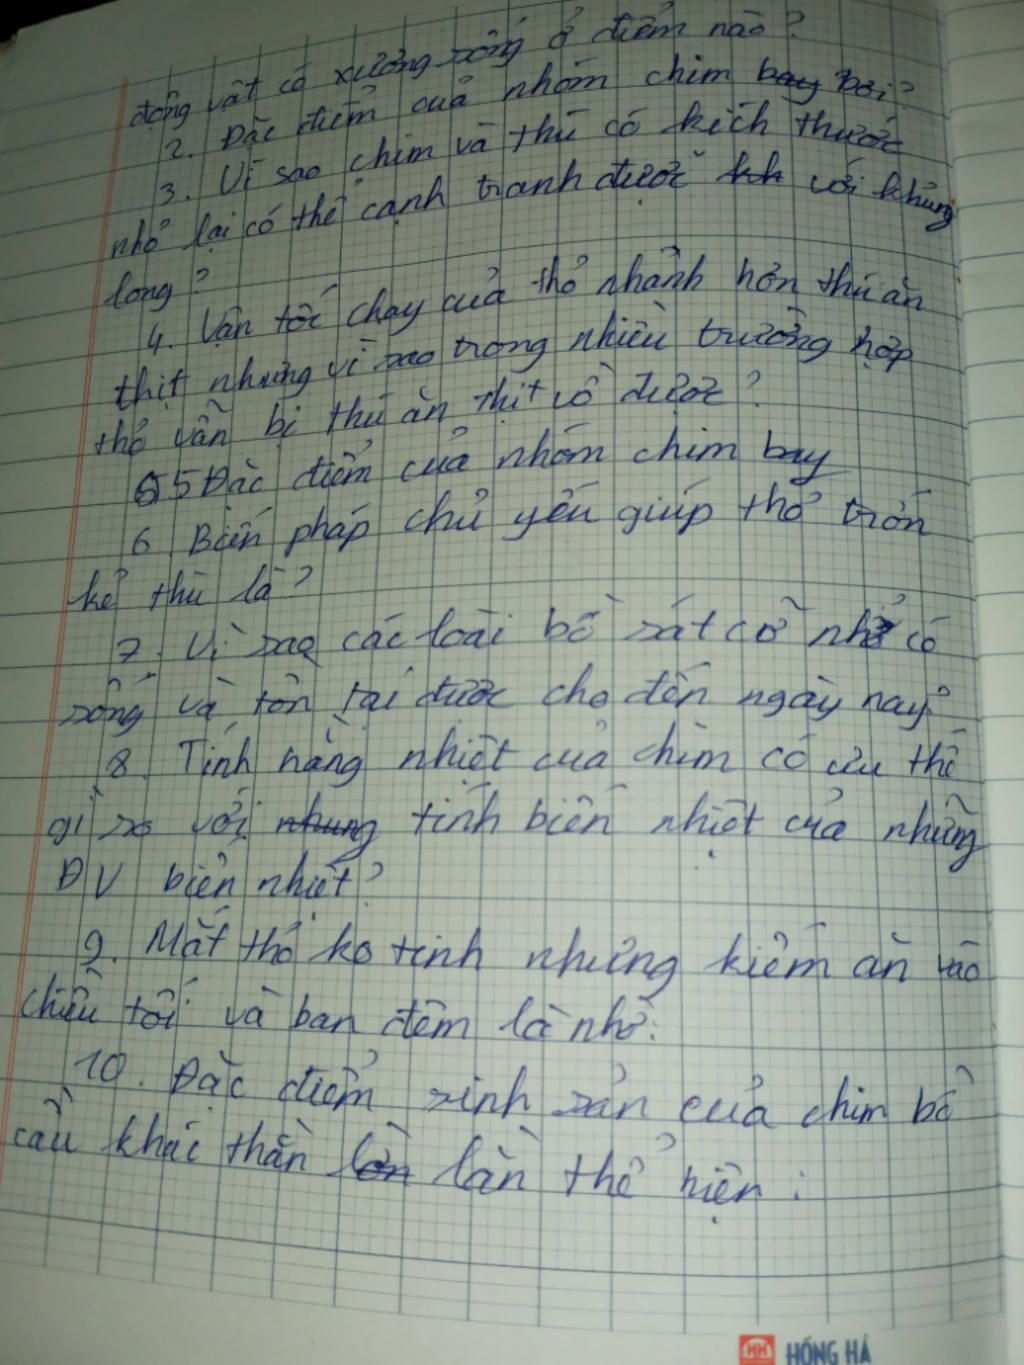 động vật có xương sống ở điểm nào?
2. Đặc điểm của nhóm chim bay bơi?
3. Vì sao chim và thú có kích thước
nhỏ lại có thể cạnh tranh được kh với khủng
long?
4. Vận tốc chạy của thỏ nhanh hơn thú ăn
thịt nhưng vì sao trong nhiều trường hợp
thỏ vẫn bị thú ăn thịt vồ được?
5 Đặc điểm của nhóm chim bay
6. Biện pháp chủ yếu giúp thỏ trốn
kẻ thù là?
7. Vì sao các loài bò sát cỡ nhỏ có
sống và tồn tại được cho đến ngày nay?
8. Tính hằng nhiệt của chim có ưu thế
gì so với nhung tính biến nhiệt của những
ĐV biến nhiệt?
9. Mắt thỏ ko tinh nhưng kiếm ăn vào
chiều tối và ban đêm là nhờ:
10. Đặc điểm sinh sản của chim bồ
câu khác thằn lằn thể hiện:
HỒNG HÀ